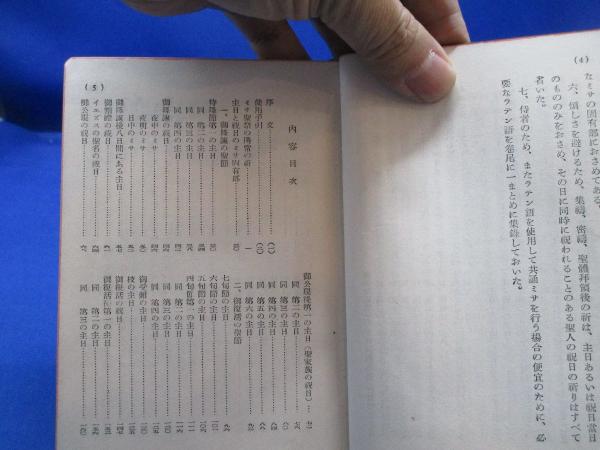 (4)
なミサの固有部におさめてある。
六、煩しさを避けるため、集禱、密禱、聖體拜領後の祈は、主日あるいは祝日當日
のもののみをおさめ、その日に同時に祝われることのある聖人の祝日の祈りはすべて
省いた。
七、侍者のため、またラテン語を使用して共誦ミサを行う場合の便宜のために、必
要なラテン語を卷尾に一まとめに集録しておいた。
(5)
內容目次
序文
使用手引
ミサ聖祭の通常の祈
主日と祝日のミサ固有部
一、御降誕の聖節
待降節第一の主日
同 第二の主日
同 第三の主日
同 第四の主日
御降誕の祝日
夜半のミサ
夜明のミサ
日中のミサ
御降誕後八日間にある主日
御割禮の祝日
イエズスの聖名の祝日
御公現の祝日
御公現後第一の主日(聖家族の祝日)
同 第二の主日
同 第三の主日
同 第四の主日
同 第五の主日
同 第六の主日
二、御復活の聖節
七旬節の主日
六旬節の主日
五旬節の主日
四旬節第一の主日
同 第二の主日
同 第三の主日
同 第四の主日
御受難の主日
枝の主日
御復活の祝日
御復活後第一の主日
同 第二の主日
同 第三の主日